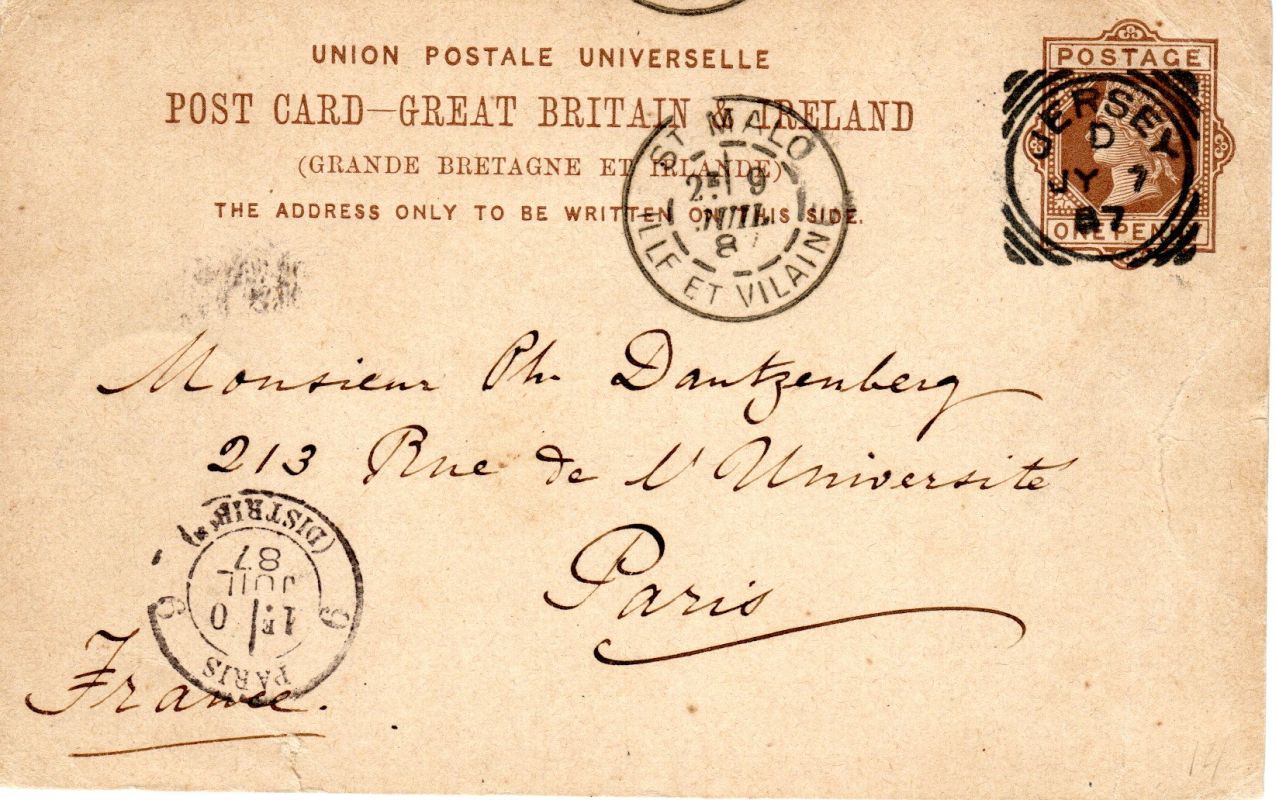 UNION POSTALE UNIVERSELLE
POST CARD—GREAT BRITAIN & IRELAND
(GRANDE BRETAGNE ET IRLANDE)
THE ADDRESS ONLY TO BE WRITTEN ON THIS SIDE.
POSTAGE
ONE PENNY
JERSEY
D
JY 7
87
ST MALO
2E 9
JUIL
8
ILLE ET VILAINE
Monsieur Ph. Dautzenberg
213 Rue de l'Université
Paris
France.
PARIS
1E 0
JUIL
87
(DISTRIB
14